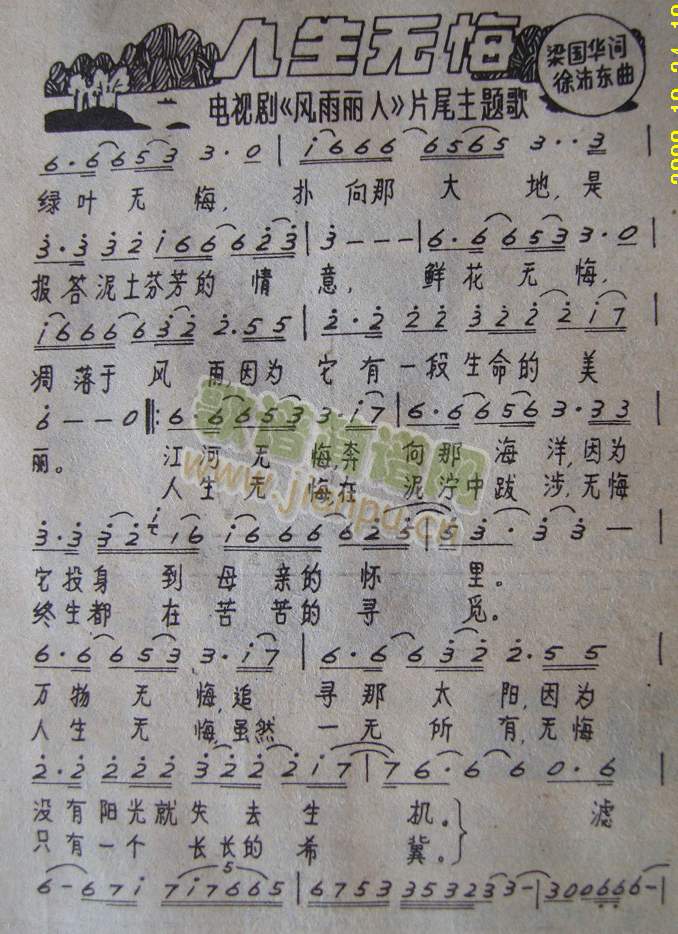 人生无悔
梁国华词
徐沛东曲
电视剧《风雨丽人》片尾主题歌
6·6 6 5 3 3·0 | i 6 6 6 6 5 6 5 3··3 |
绿叶无悔, 扑向那大地,是
3·3 3 2 i 6 6 6 2 3 | 3 - - - | 6·6 6 5 3 3·0 |
报答泥土芬芳的情意, 鲜花无悔,
i 6 6 6 6 3 2 2·5 5 | 2·2 2 2 3 2 2 2 i 7 |
凋落于风雨因为它有一段生命的美
6 - - 0 ‖: 6·6 6 5 3 3·i 7 | 6·6 6 5 6 3·3 3
丽。 江河无悔,奔向那海洋,因为
人生无悔在泥泞中跋涉,无悔
3·3 3 2 i 6 i 6 6 6 6 2 5 | 5 3· 3 3 - |
它投身到母亲的怀里。
终生都在苦苦的寻觅。
6·6 6 5 3 3·i 7 | 6·6 6 3 2 2·5 5 |
万物无悔,追寻那太阳,因为
人生无悔,虽然一无所有,无悔
2·2 2 2 2 3 2 2 2 i 7 | 7 6·6 6 0·6 |
没有阳光就失去生机。} 滤
只有一个长长的希冀。}
6 - 6 7 i 7 i 7 6 6 5 | 6 7 5 3 3 5 3 2 3 3 - | 3 0 0 6 6 6 - |
歌谱简谱网
www.jianpu.cn